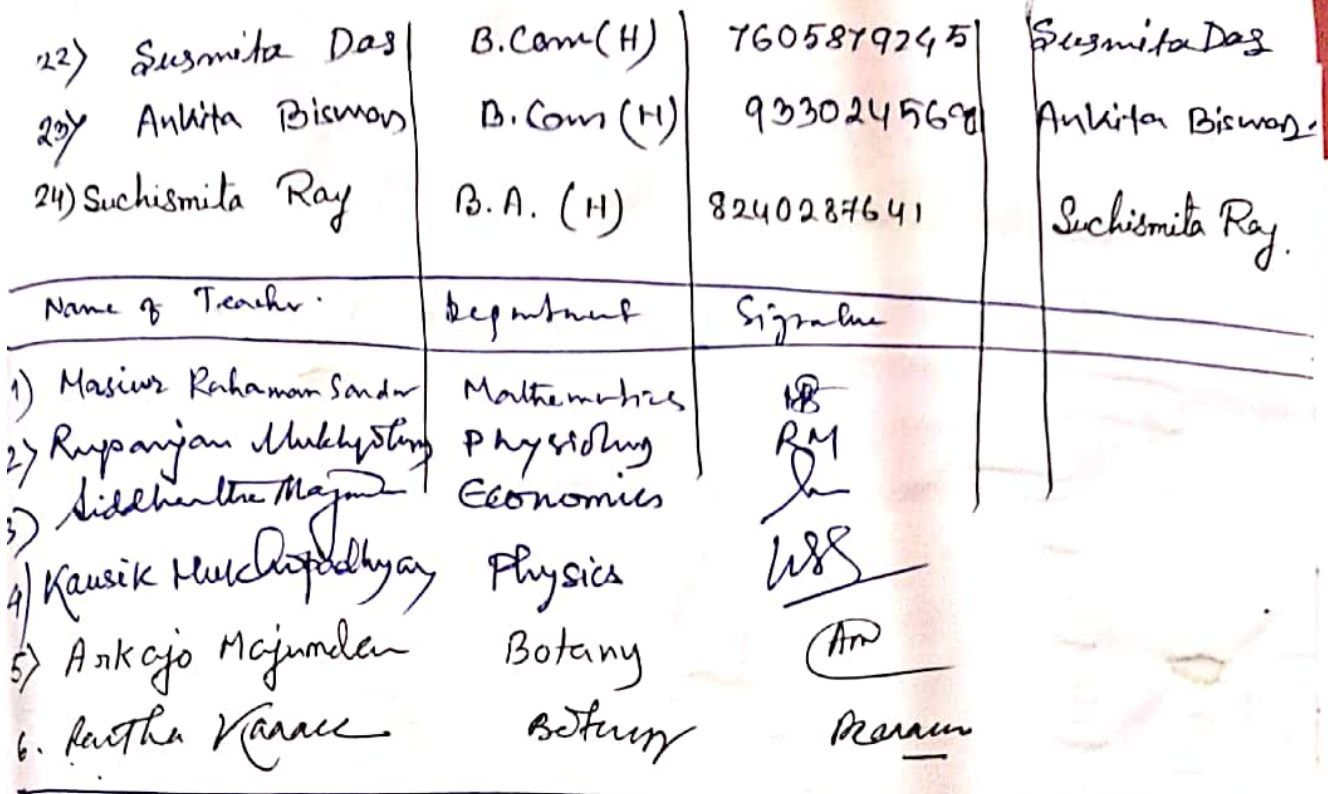 22) Susmita Das B.Com(H) 7605879245 Susmita Das
23) Ankita Biswas B.Com (H) 933024568 Ankita Biswas.
24) Suchismita Ray B.A. (H) 8240287641 Suchismita Ray.
Name of Teacher. Department Signature
1) Masiur Rahaman Sardar Mathematics
2) Rupanjan Mukhyopadhyay Physiology RM
3) Siddhartha Majumder Economics
4) Kausik Mukhopadhyay Physics
5) Arkajo Majumdar Botany AM
6. Partha Karak Botany